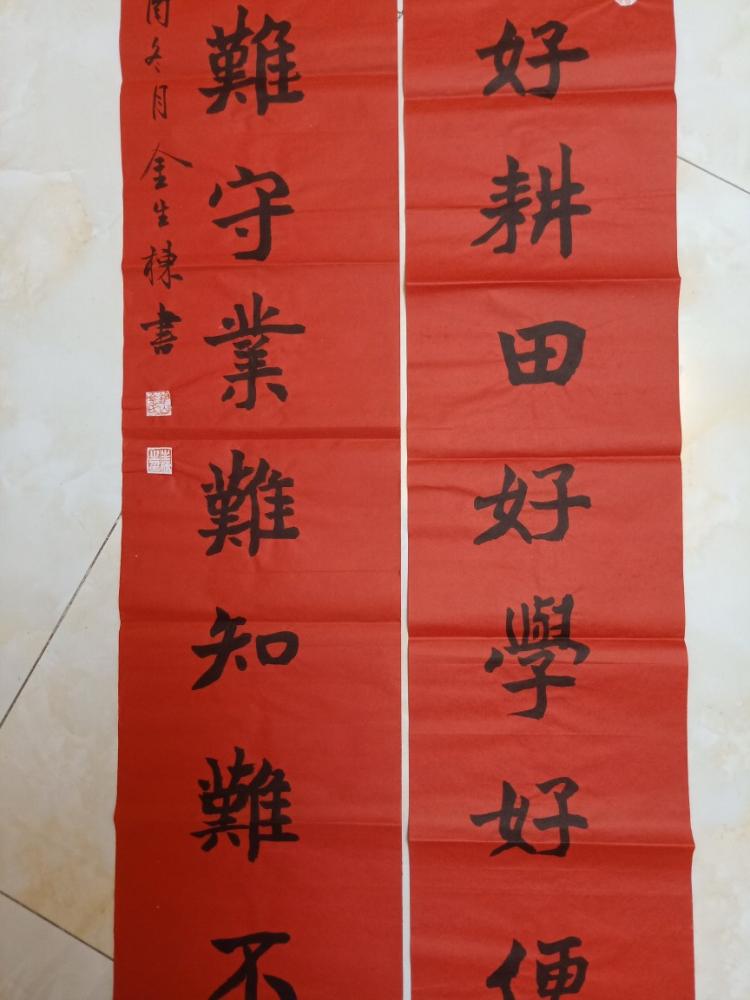 好耕田好學好便
難守業難知難不
酉冬月金生棟書